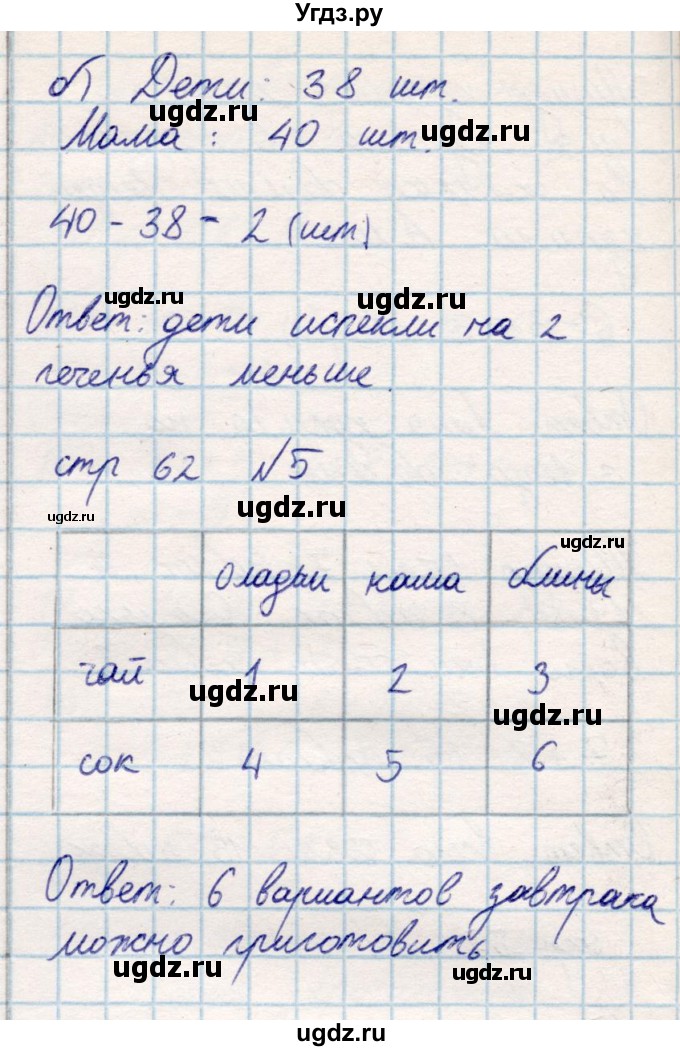 Угдз.ру
б) Дети: 38 шт.
ugdz.ru
Мама: 40 шт.
ugdz.ru
40 - 38 = 2 (шт)
ugdz.ru
ugdz.ru
Ответ: дети испекли на 2
печенья меньше.
стр 62 №5
ugdz.ru
ugdz.ru
ugdz.ru
оладьи каша блины
чай 1 2 3
ugdz.ru
ugdz.ru
сок 4 5 6
Ответ: 6 вариантов завтрака
можно приготовить
ugdz.ru
ugdz.ru
ugdz.ru